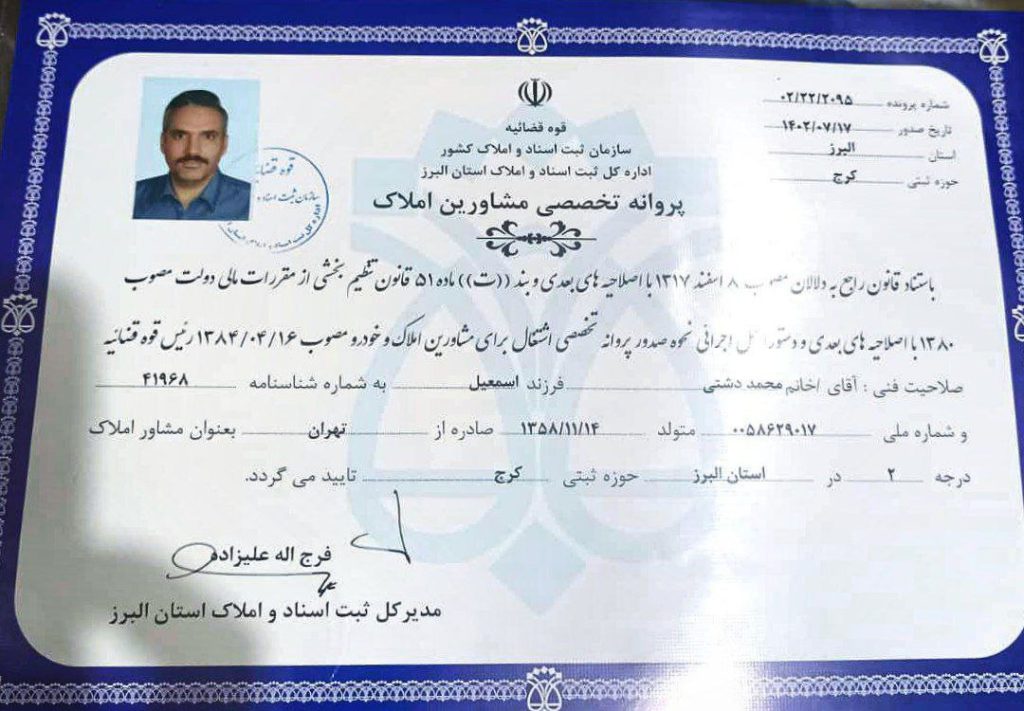 شماره پرونده ۰۲/۲۲/۲۰۹۵
تاریخ صدور ۱۴۰۲/۰۷/۱۷
استان البرز
حوزه ثبتی کرج
قوه قضائیه
سازمان ثبت اسناد و املاک کشور
اداره کل ثبت اسناد و املاک استان البرز
پروانه تخصصی مشاورین املاک
قوه قضائیه
سازمان ثبت اسناد
باستناد قانون راجع به دلالان مصوب ۸ اسفند ۱۳۱۷ با اصلاحیه های بعدی و بند ((ت)) ماده ۵۱ قانون تنظیم بخشی از مقررات مالی دولت مصوب
۱۳۸۰ با اصلاحیه های بعدی و اجرائی نحوه صدور پروانه تخصصی اشتغال برای مشاورین املاک و خودرو مصوب ۱۳۸۴/۰۴/۱۶ رئیس قوه قضائیه
صلاحیت فنی : آقای /خانم محمد دشتی فرزند اسمعیل به شماره شناسنامه ۴۱۹۶۸
و شماره ملی ۰۰۵۸۶۲۹۰۱۷ متولد ۱۳۵۸/۱۱/۱۴ صادره از تهران بعنوان مشاور املاک
درجه ۲ در استان البرز حوزه ثبتی کرج تایید می گردد.
فرج اله علیزاده
مدیرکل ثبت اسناد و املاک استان البرز